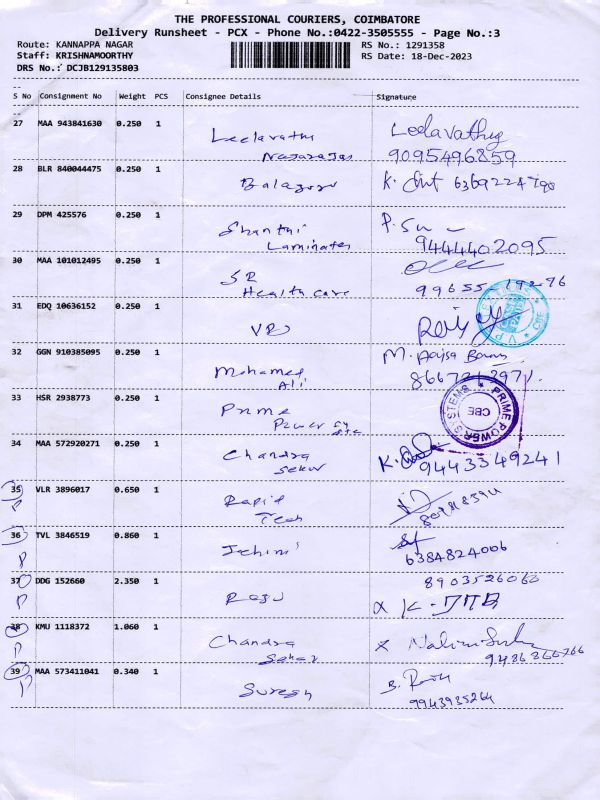 THE PROFESSIONAL COURIERS, COIMBATORE
Delivery Runsheet - PCX - Phone No.:0422-3505555 - Page No.:3
Route: KANNAPPA NAGAR RS No.: 1291358
Staff: KRISHNAMOORTHY RS Date: 18-Dec-2023
DRS No.: DCJB129135803
S No Consignment No Weight PCS Consignee Details Signature
27 MAA 943841630 0.250 1 Leelavathi Leelavathy
Nagarajan 9095496859
28 BLR 840044475 0.250 1 Balaguru K.
29 DPM 425576 0.250 1 Shanthi P.
Laminates 9444402095
30 MAA 101012495 0.250 1 SR
Health care 99655
31 EDQ 10636152 0.250 1 VP
32 GGN 910385095 0.250 1 Mohamed M.
Ali
33 HSR 2938773 0.250 1 Prime
Power Sys
PRIME POWER SYSTEMS
CBE
34 MAA 572920271 0.250 1 Chandra K.
Sekar 9443349241
35 VLR 3896017 0.650 1 Rapid
P Tech
36 TVL 3846519 0.860 1
P 6384824006
37 DDG 152660 2.350 1 Raju 8903526060
P
38 KMU 1118372 1.060 1 Chandra
P Sekar 9486366766
39 MAA 573411041 0.340 1 Suresh B.
P 9943935264